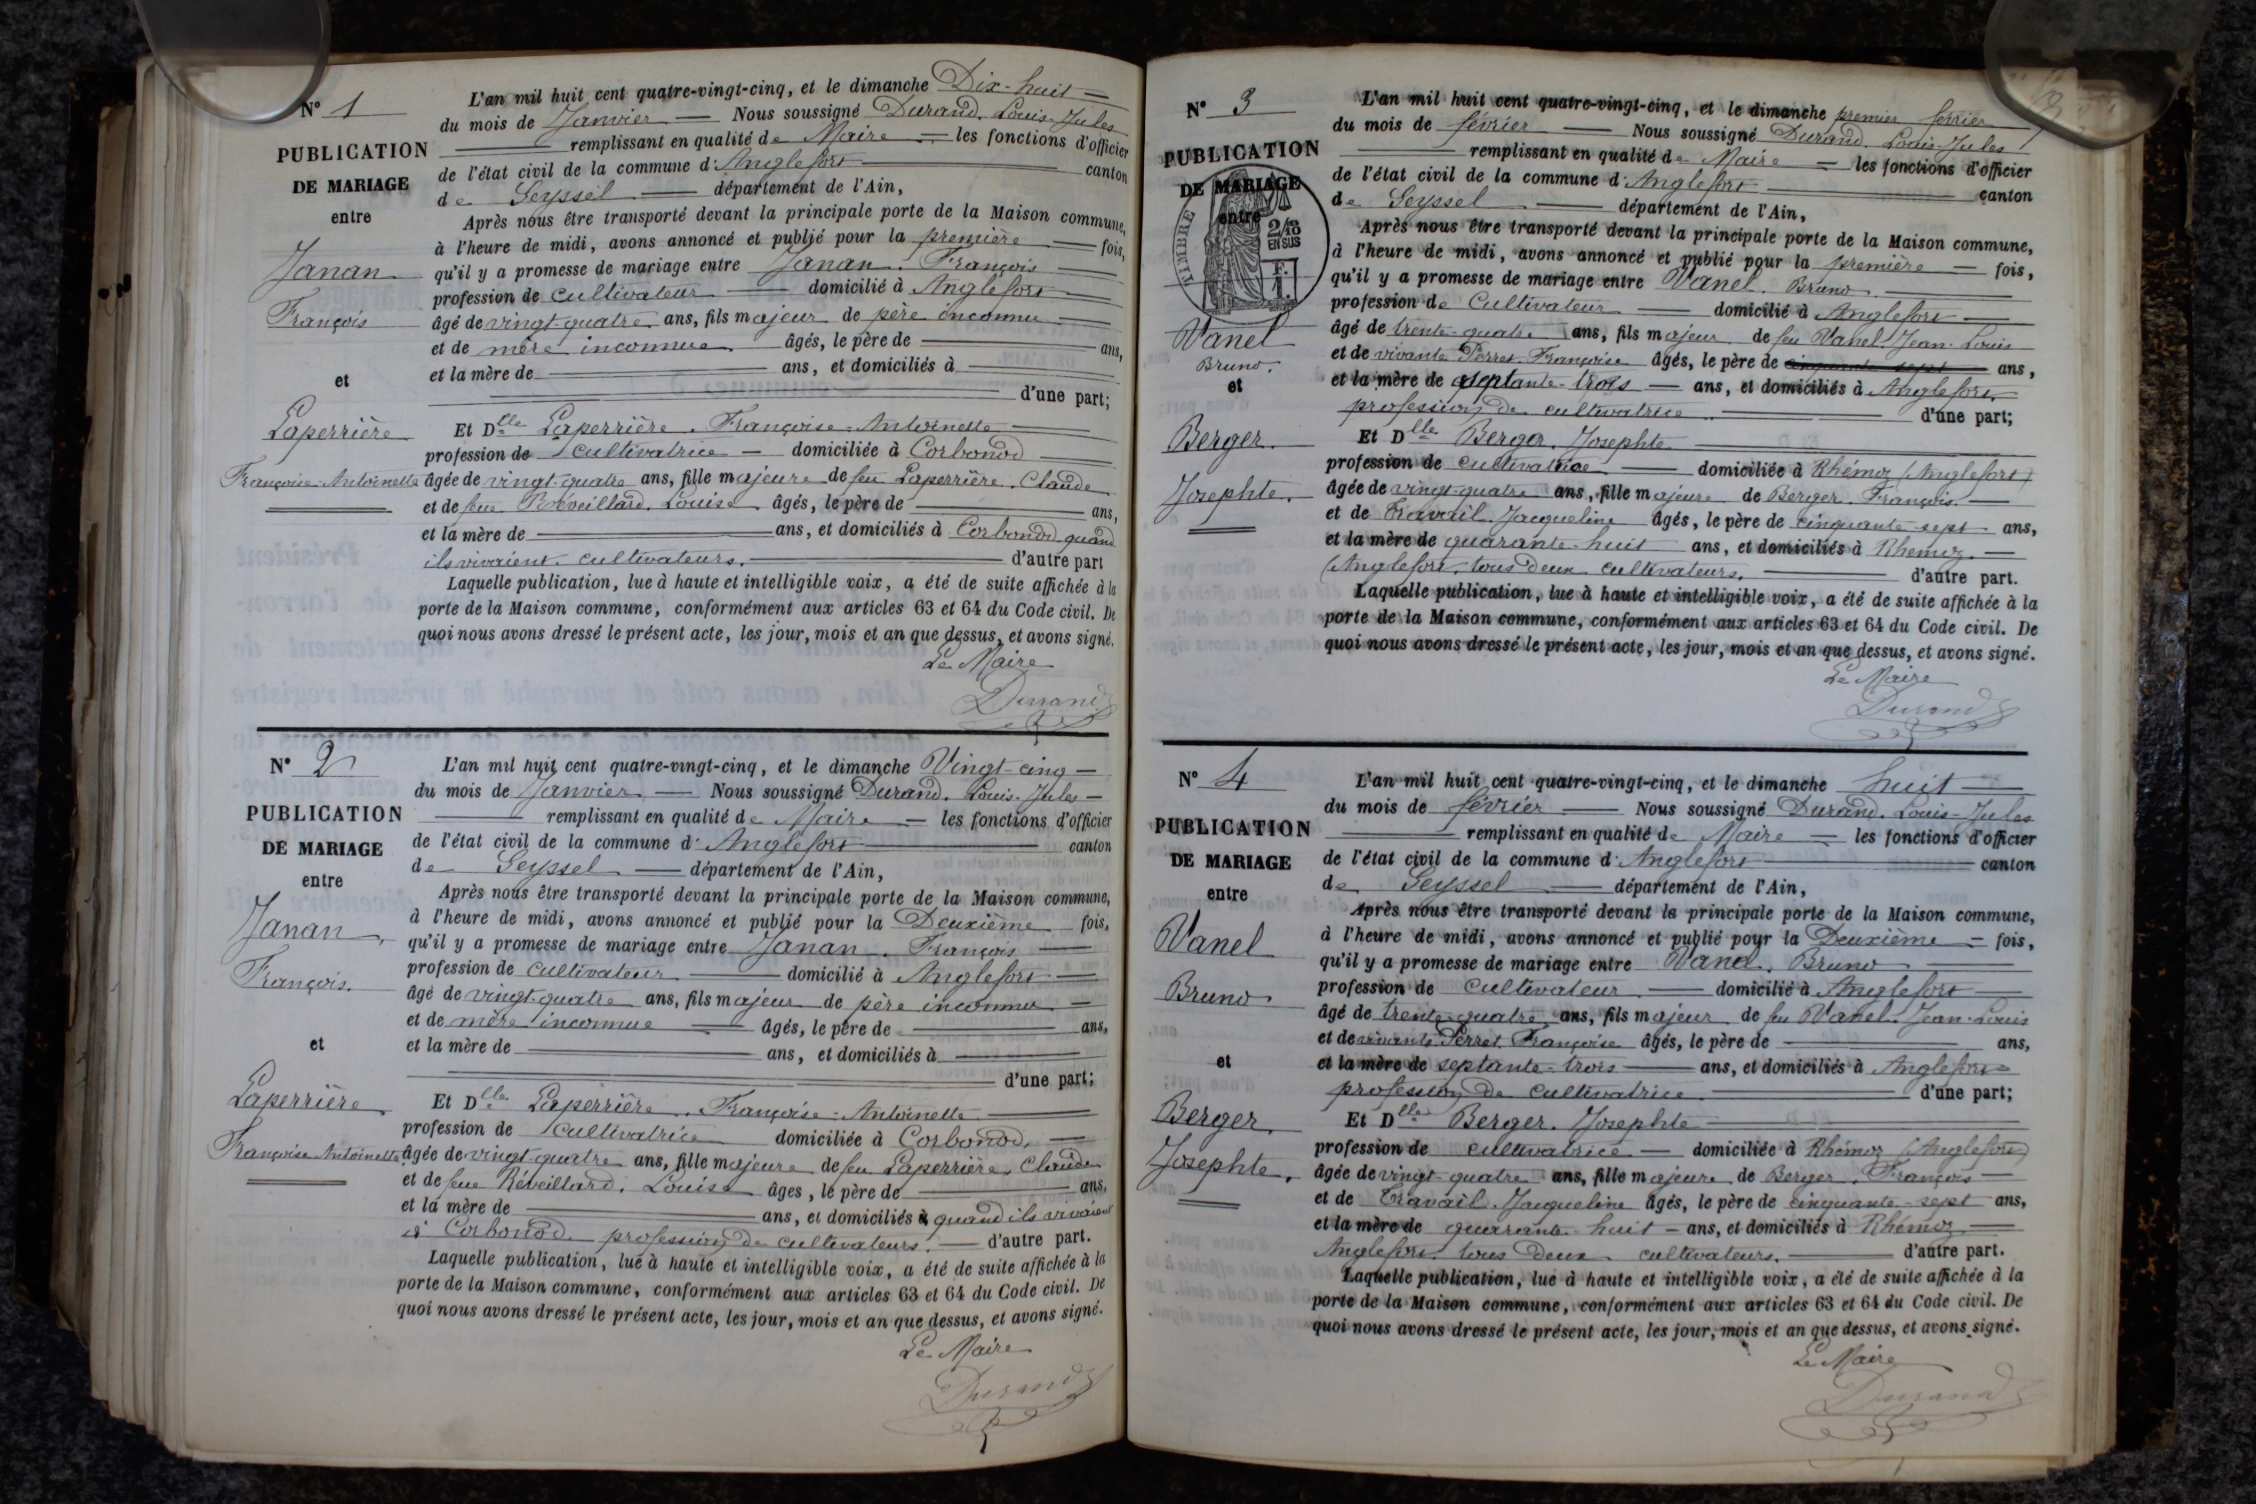 N° 1
PUBLICATION
DE MARIAGE
entre
Janan
François
et
Laperrière
Françoise-Antoinette
L'an mil huit cent quatre-vingt-cinq, et le dimanche Dix-huit
du mois de Janvier Nous soussigné Durand. Louis-Jules
remplissant en qualité de Maire les fonctions d'officier
de l'état civil de la commune d'Anglefort canton
de Seyssel département de l'Ain,
Après nous être transporté devant la principale porte de la Maison commune,
à l'heure de midi, avons annoncé et publié pour la première fois,
qu'il y a promesse de mariage entre Janan. François
profession de cultivateur domicilié à Anglefort
âgé de vingt-quatre ans, fils majeur de père inconnu
et de mère inconnue âgés, le père de ans,
et la mère de ans, et domiciliés à
d'une part;
Et Dlle Laperrière. Françoise-Antoinette
profession de cultivatrice domiciliée à Corbonod
âgée de vingt-quatre ans, fille majeure de feu Laperrière. Claude
et de feue Réveillard. Louise âgés, le père de ans,
et la mère de ans, et domiciliés à Corbonod quand
ils vivaient cultivateurs. d'autre part
Laquelle publication, lue à haute et intelligible voix, a été de suite affichée à la
porte de la Maison commune, conformément aux articles 63 et 64 du Code civil. De
quoi nous avons dressé le présent acte, les jour, mois et an que dessus, et avons signé.
Le Maire
Durand
N° 2
PUBLICATION
DE MARIAGE
entre
Janan
François.
et
Laperrière
Françoise Antoinette
L'an mil huit cent quatre-vingt-cinq, et le dimanche Vingt-cinq
du mois de Janvier Nous soussigné Durand. Louis-Jules
remplissant en qualité de Maire les fonctions d'officier
de l'état civil de la commune d'Anglefort canton
de Seyssel département de l'Ain,
Après nous être transporté devant la principale porte de la Maison commune,
à l'heure de midi, avons annoncé et publié pour la Deuxième fois,
qu'il y a promesse de mariage entre Janan. François
profession de cultivateur domicilié à Anglefort
âgé de vingt-quatre ans, fils majeur de père inconnu
et de mère inconnue âgés, le père de ans,
et la mère de ans, et domiciliés à
d'une part;
Et Dlle Laperrière. Françoise-Antoinette
profession de cultivatrice domiciliée à Corbonod.
âgée de vingt-quatre ans, fille majeure de feu Laperrière. Claude
et de feue Réveillard. Louise âges, le père de ans,
et la mère de ans, et domiciliés à quand ils vivaient
à Corbonod. profession de cultivateurs. d'autre part.
Laquelle publication, lue à haute et intelligible voix, a été de suite affichée à la
porte de la Maison commune, conformément aux articles 63 et 64 du Code civil. De
quoi nous avons dressé le présent acte, les jour, mois et an que dessus, et avons signé.
Le Maire
Durand
N° 3
PUBLICATION
DE MARIAGE
entre
TIMBRE
2/10
EN SUS
F.
Vanel
Bruno.
et
Berger.
Josephte.
L'an mil huit cent quatre-vingt-cinq, et le dimanche premier février
du mois de février Nous soussigné Durand. Louis-Jules
remplissant en qualité de Maire les fonctions d'officier
de l'état civil de la commune d'Anglefort canton
de Seyssel département de l'Ain,
Après nous être transporté devant la principale porte de la Maison commune,
à l'heure de midi, avons annoncé et publié pour la première fois,
qu'il y a promesse de mariage entre Vanel. Bruno.
profession de Cultivateur domicilié à Anglefort
âgé de trente-quatre ans, fils majeur de feu Vanel. Jean-Louis
et de vivante Perret. Françoise âgés, le père de cinquante sept ans,
et la mère de septante-trois ans, et domiciliés à Anglefort.
profession de cultivatrice d'une part;
Et Dlle Berger. Josephte
profession de cultivatrice domiciliée à Rhémoz (Anglefort)
âgée de vingt-quatre ans, fille majeure de Berger. François.
et de Travail. Jacqueline âgés, le père de cinquante-sept ans,
et la mère de quarante-huit ans, et domiciliés à Rhemoz.
(Anglefort. tous deux cultivateurs. d'autre part.
Laquelle publication, lue à haute et intelligible voix, a été de suite affichée à la
porte de la Maison commune, conformément aux articles 63 et 64 du Code civil. De
quoi nous avons dressé le présent acte, les jour, mois et an que dessus, et avons signé.
Le Maire
Durand
N° 4
PUBLICATION
DE MARIAGE
entre
Vanel
Bruno
et
Berger.
Josephte.
L'an mil huit cent quatre-vingt-cinq, et le dimanche huit
du mois de février Nous soussigné Durand. Louis-Jules
remplissant en qualité de Maire les fonctions d'officier
de l'état civil de la commune d'Anglefort canton
de Seyssel département de l'Ain,
Après nous être transporté devant la principale porte de la Maison commune,
à l'heure de midi, avons annoncé et publié pour la Deuxième fois,
qu'il y a promesse de mariage entre Vanel. Bruno
profession de cultivateur domicilié à Anglefort
âgé de trente-quatre ans, fils majeur de feu Vanel. Jean-Louis
et de vivante Perret. Françoise âgés, le père de ans,
et la mère de septante-trois ans, et domiciliés à Anglefort
profession de cultivatrice d'une part;
Et Dlle Berger. Josephte
profession de cultivatrice domiciliée à Rhémoz (Anglefort)
âgée de vingt-quatre ans, fille majeure de Berger. François
et de Travail. Jacqueline âgés, le père de cinquante-sept ans,
et la mère de quarante-huit ans, et domiciliés à Rhémoz
Anglefort. tous deux cultivateurs. d'autre part.
Laquelle publication, lue à haute et intelligible voix, a été de suite affichée à la
porte de la Maison commune, conformément aux articles 63 et 64 du Code civil. De
quoi nous avons dressé le présent acte, les jour, mois et an que dessus, et avons signé.
Le Maire
Durand